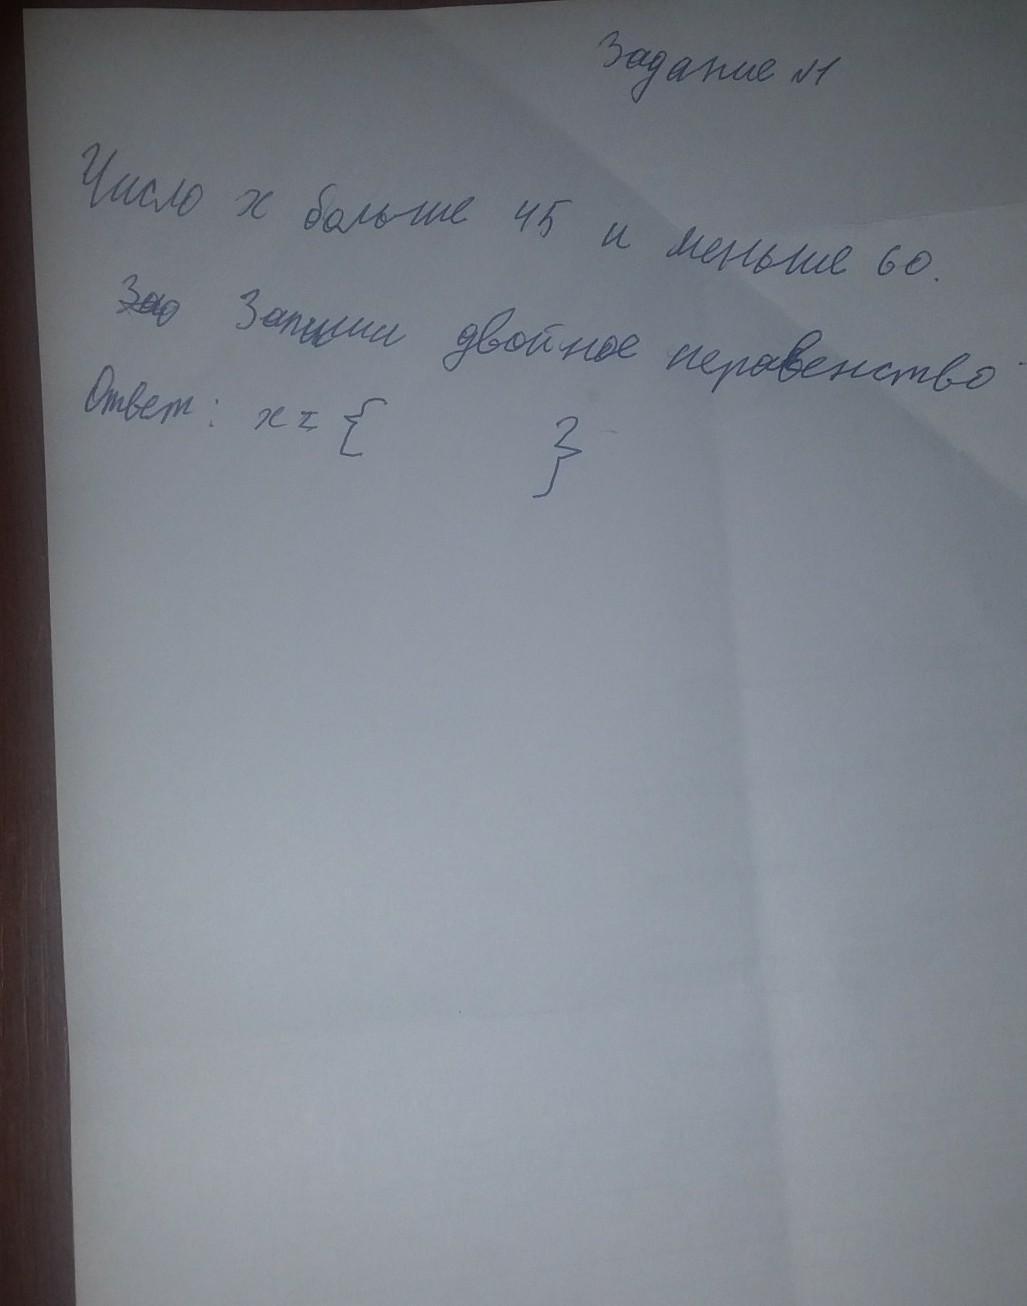 Задание №1
Число x больше 45 и меньше 60.
Зад Запиши двойное неравенство
Ответ: x = {          }